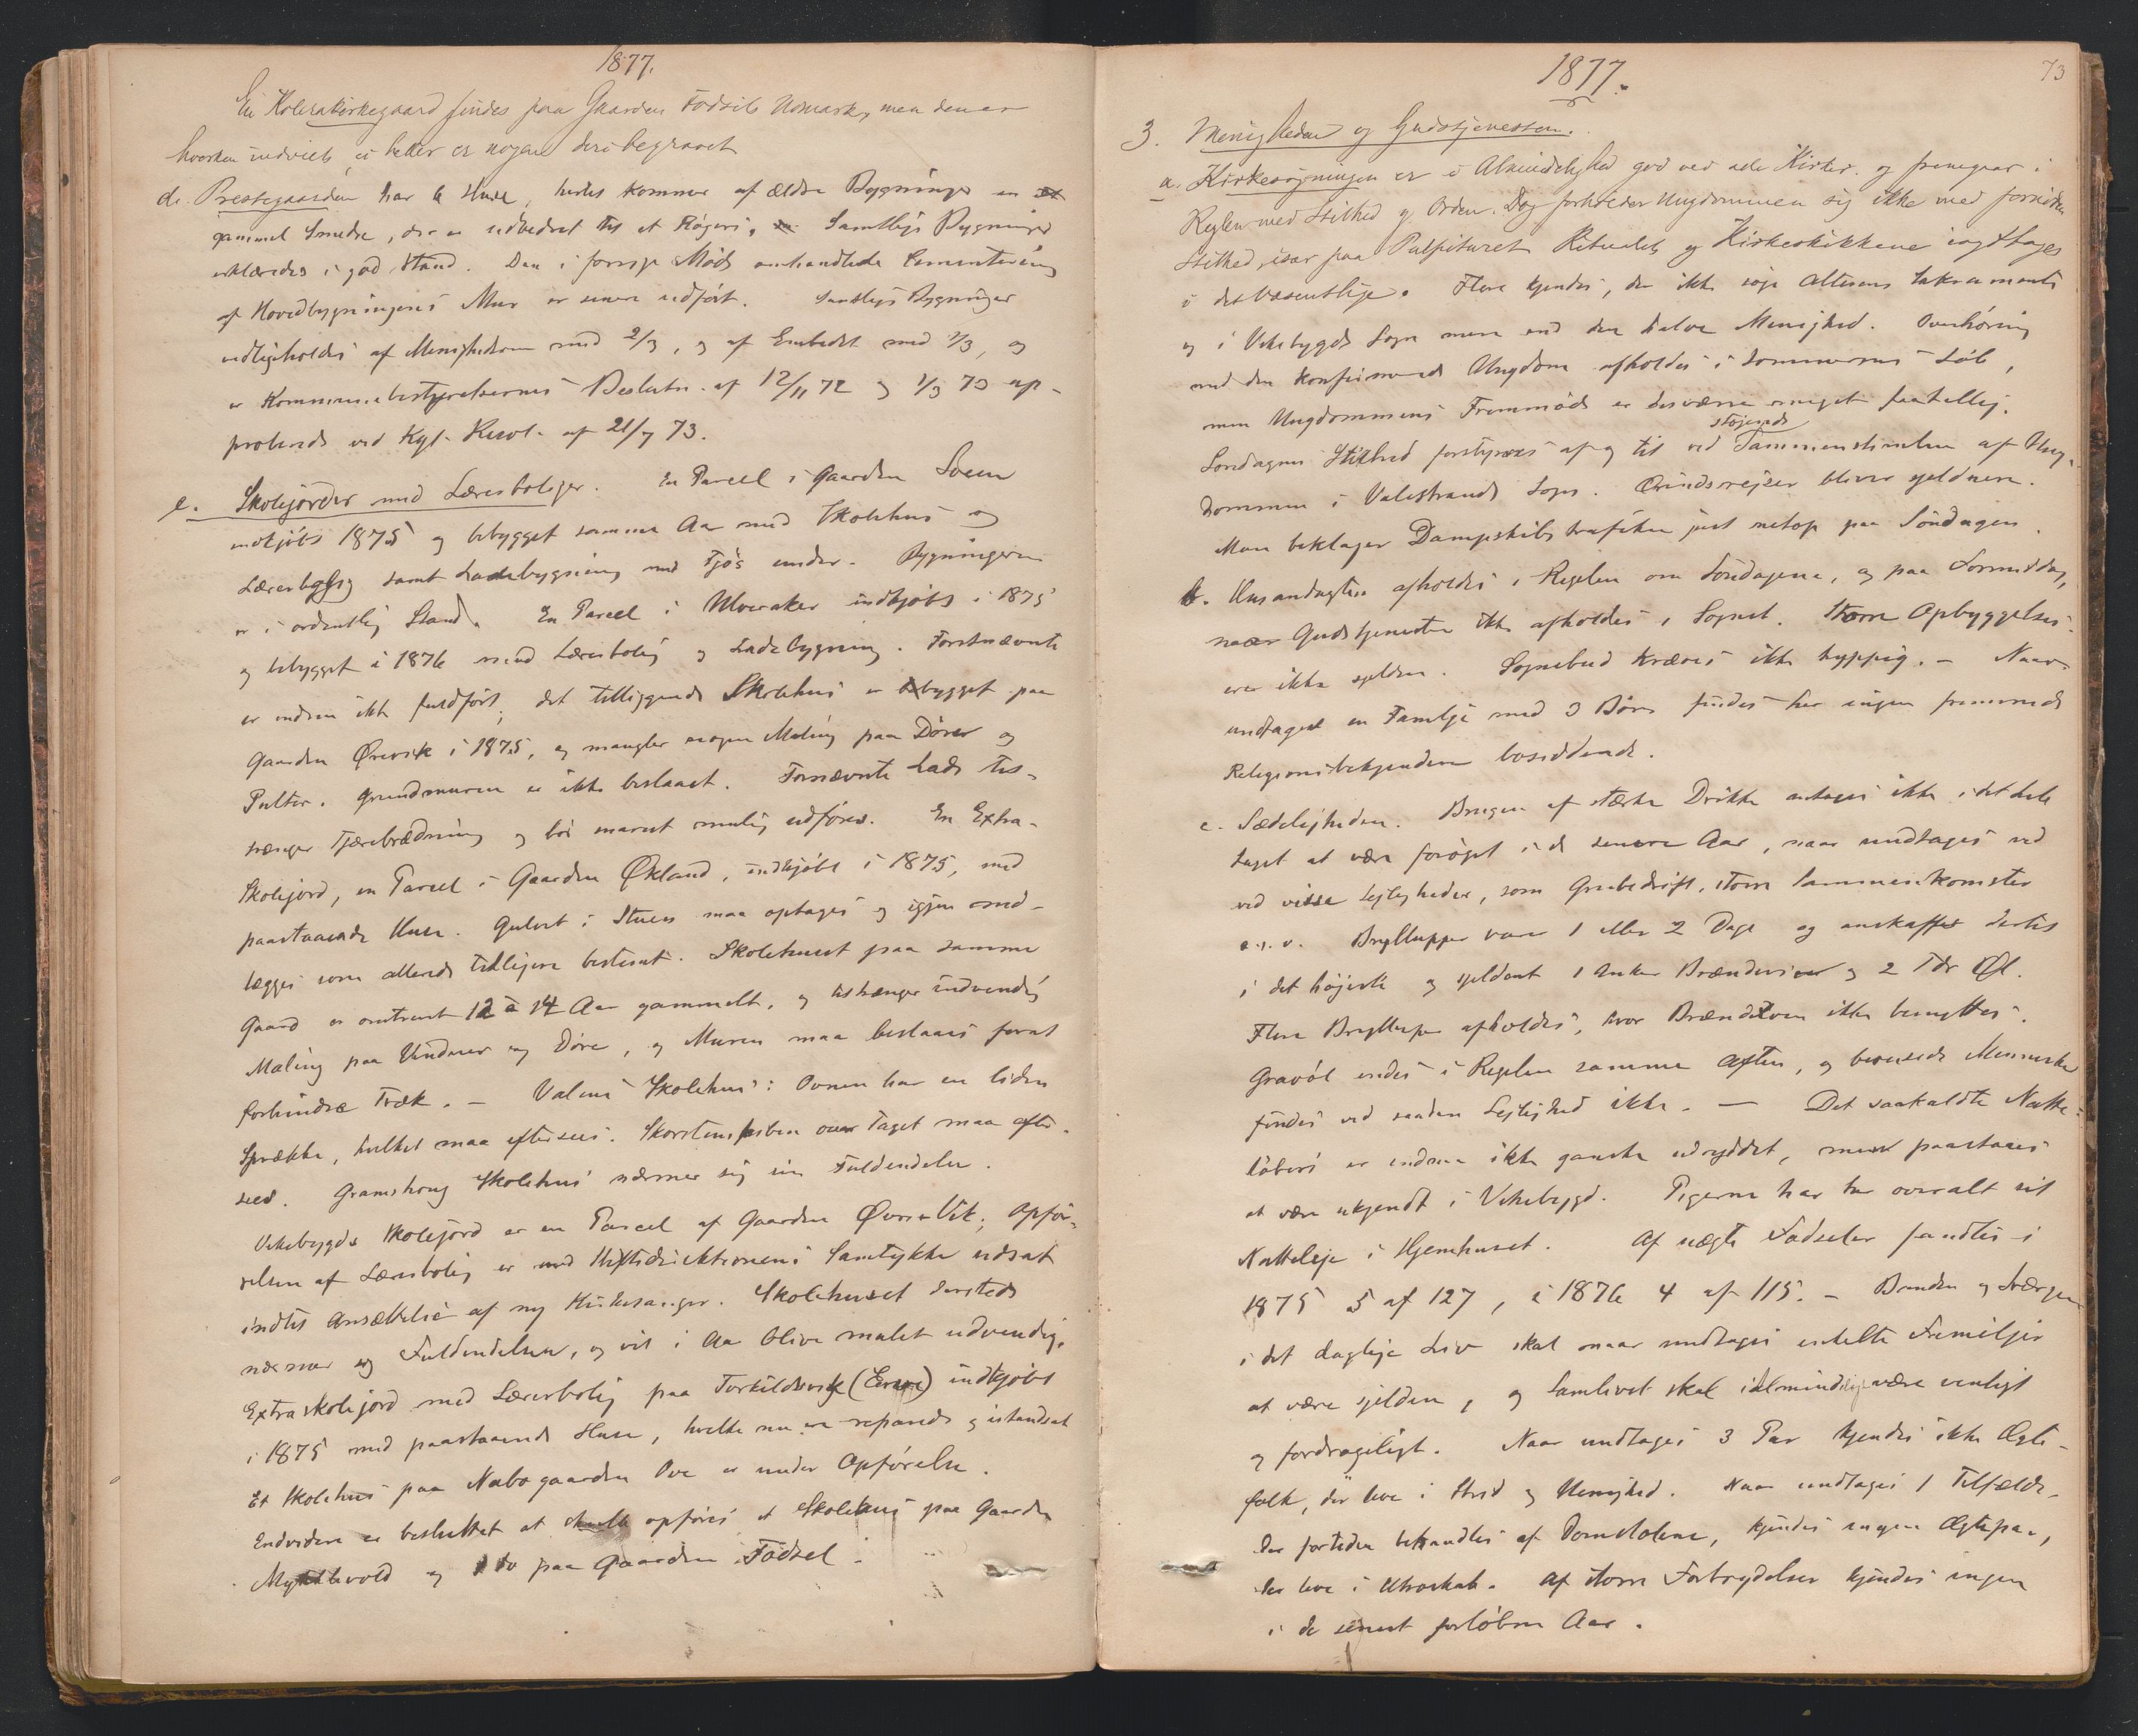 1877.
En Kolerakirkegaard findes paa Gaarden Fødsels Udmark, men den er
hverken indviet, ei heller er nogen deri begravet
d. Præstegaarden har 6 Huse, hertil kommer af ældre Bygninger en
gammel Smedie, der er udvidet til et Røgeri. Samtlige Bygninger
erklæredes i god Stand. Den i forrige Møde omhandlede Cementering
af Hovedbygningens Mur er senere udført. Samtlige Bygninger
vedligeholdes af Menigheden med 2/3, og af Embedet med 1/3, og
er Kommunebestyrelsernes Beslutn. af 12/11 72 og 1/3 73 ap-
proberede ved Kgl. Resol. af 21/7 73.
e. Skolejorder med Lærerboliger. En Parcel i Gaarden Sveen
indkjøbt 1875 og bebygget samme Aar med Skolehus og
Lærerbolig samt Ladebygning med Fjøs under. Bygningerne
er i ordentlig Stand. En Parcel i Ulveraker indkjøbt i 1875
og bebygget i 1876 med Lærerbolig og Ladebygning. Førstnævnte
er endnu ikke fuldført; det tilliggende Skolehus er bygget paa
Gaarden Ørevik i 1875, og mangler nogen Maling paa Dører og
Pulter. Grundmuren er ikke beslaaet. Fornævnte Lade til-
trænger Tjærebrædning og bør snarest mulig udføres. En Extra-
Skolejord, en Parcel i Gaarden Økland, indkjøbt i 1875, med
paastaaende Huse. Gulvet i Stuen maa optages og igjen ned-
lægges som allerede tidligere bestemt. Skolehuset paa samme
Gaard er omtrent 12 à 14 Aar gammelt, og tiltrænger indvendig
Maling paa Vinduer og Døre, og Muren maa beslaaes forat
forhindre Træk. – Valens Skolehus: Ovnen har en liden
Sprække, hvilket maa eftersees. Skorstenspiben over Taget maa efter-
sees. Gramshoug Skolehus nærmer sig sin Fuldendelse.
Vikebygds Skolejord er en Parcel af Gaarden Øvre-Vik; Opfør-
relsen af Lærerbolig er med Stiftsdirektionens Samtykke udsat
indtil Ansættelse af ny Kirkesanger. Skolehuset dersteds
nærmer sig Fuldendelsen, og vil i Aar blive malet udvendig.
Extraskolejord med Lærerbolig paa Torkildsvik () indkjøbt
i 1875 med paastaaende Huse, hvilke nu ere reparede og istandsat
Et Skolehus paa Nabogaarden Ove er under Opførelse.
Endvidere er besluttet at skulle opføres et Skolehus paa Gaarden
Myklevold og 1 do paa Gaarden Fødsel.
1877.
73
3. Menigheden og Gudstjenesten.
a. Kirkesøgningen er i Almindelighed god ved alle Kirker. og foregaar i
Reglen med Stilhed og Orden. Dog forholder Ungdommen sig ikke med fornøden
Stilhed, især paa Pulpituret. Ritualet og Kirkeskikkene iagttages
i det Væsentlige. Flere kjendes, der ikke søge Alterens Sakramente
og i Vikebygds Sogn mere end den halve Menighed. Overhøring
med den konfirmerede Ungdom afholdes i Sommerens Løb,
men Ungdommens Fremmøde er desværre meget faatallig.
støjende
Søndagens Stilhed forstyrres af og til ved Sammenstimlen af Ung-
dommen i Valestrands Sogn. Ærindsrejser bliver sjeldnere.
Man beklager Dampskibstrafiken just netop paa Søndagen.
b. Husandagten afholdes i Regelen om Søndagene, og paa Formiddag,
naar Gudstjenesten ikke afholdes i Sognet. Større Opbyggelser
ere ikke sjeldne. Sognebud kræves ikke hyppig. – Naar
undtages en Familje med 3 Børn findes her ingen fremmede
Religionsbekjendere bosiddende.
c. Sædeligheden. Brugen af stærke Drikke antages ikke i det hele
taget at være forøget i de senere Aar, naar undtages ved
ved visse Lejligheder, som Grubedrift, større Sammenkomster
o.s.v. Brylluper vare 1 eller 2 Dage og anskaffes dertil
i det højeste og sjeldent 1 Anker Brændeviin og 2 Tdr Øl.
Flere Brylluper afholdes, hvor Brændeviin ikke benyttes.
Gravøl endes i Regelen samme Aften, og berusede Mennesker
findes ved saadan Lejlighed ikke. – Det saakaldte Natte-
løberi er endnu ikke ganske udryddet, men paastaaes
at være ukjendt i Vikebygd. Pigerne har her overalt sit
Natteleje i Hjemhuset. Af uægte Fødseler fandtes i
1875 5 af 127, i 1876 4 af 115. – Banden og Sværgen
i det daglige Liv skal naar undtages enkelte Familjer
at være sjelden, og Samlivet skal i Almindelighed være venligt
og fordrageligt. Naar undtages 3 Par kjendes ikke Ægte-
folk, der leve i Strid og Uenighed. Naar undtages 1 Tilfælde
der fortiden behandles af Domstolene, kjendes ingen Ægtepar,
der leve i Utroskab. Af større Forbrydelser kjendes ingen
i de senest forløbne Aar.